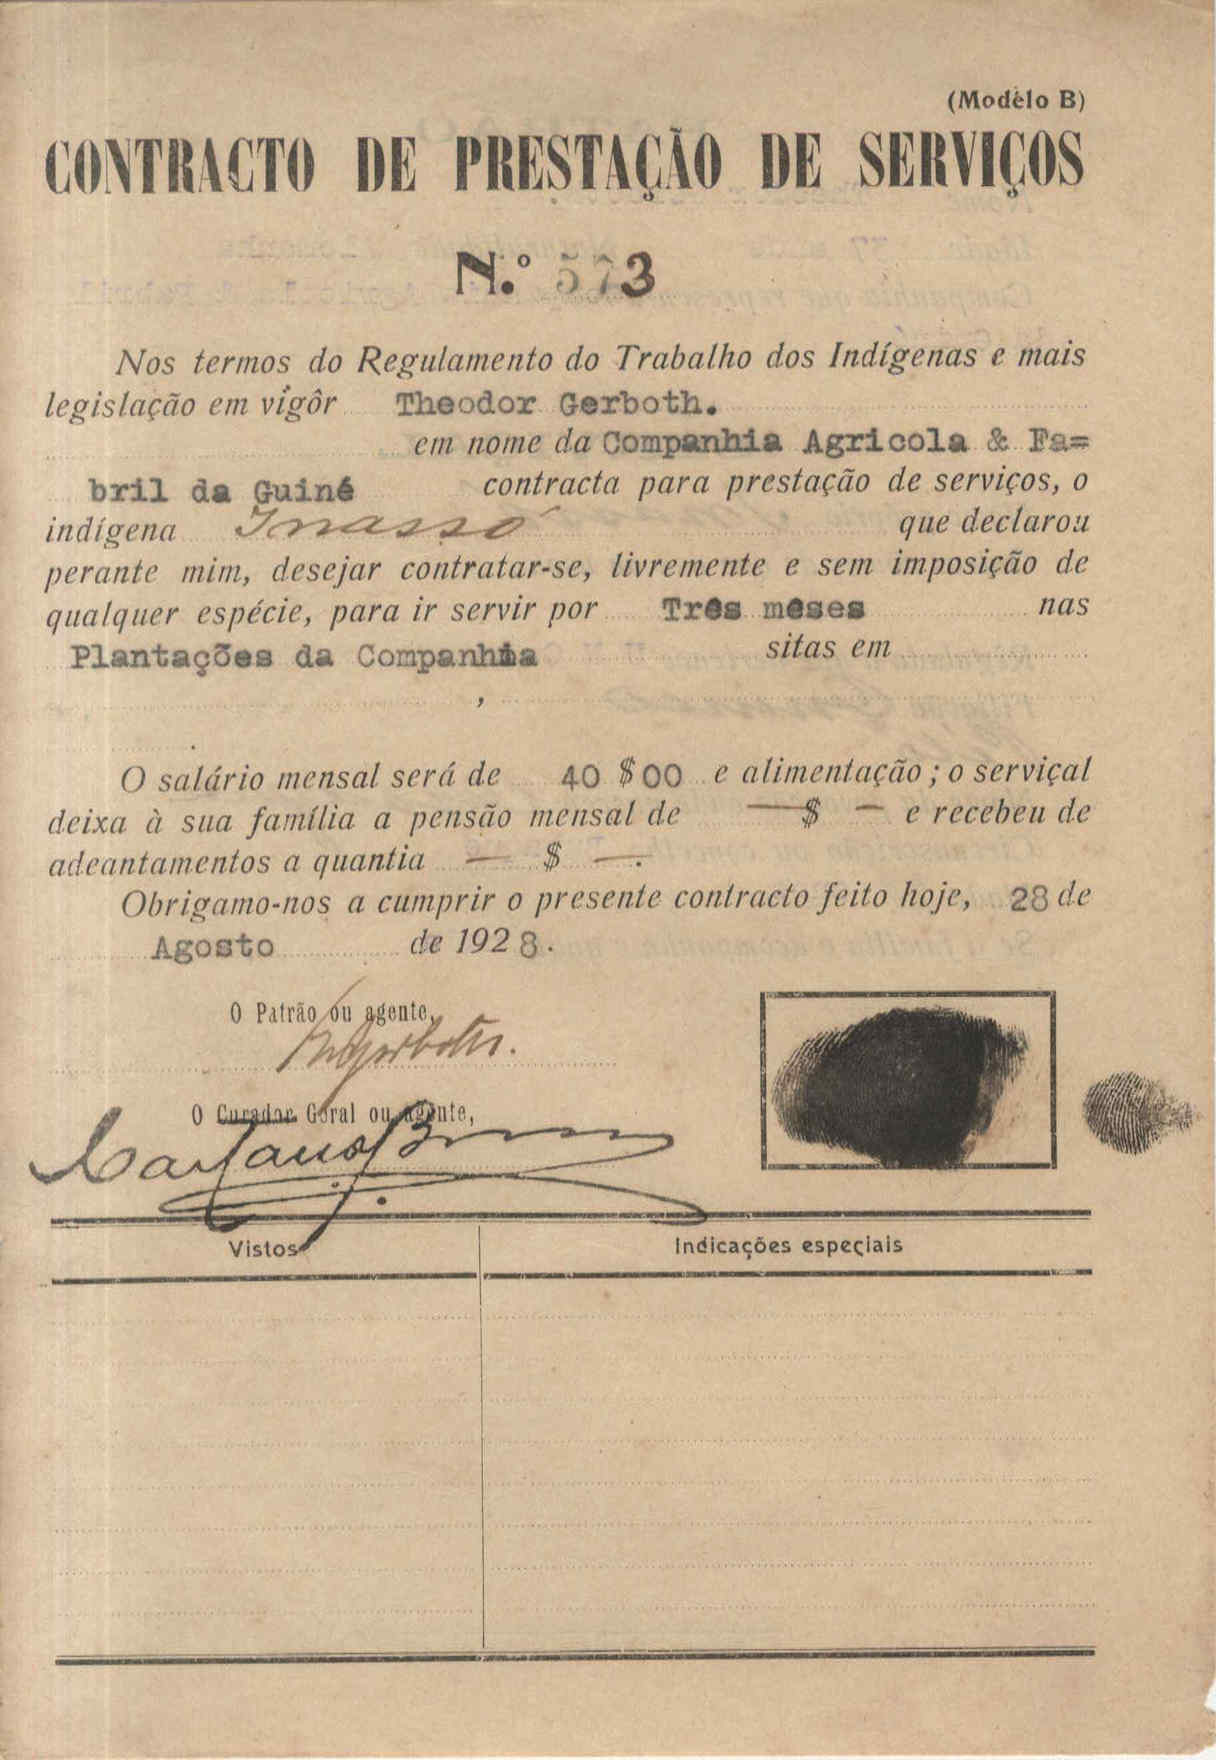 (Modêlo B)
CONTRACTO DE PRESTAÇÃO DE SERVIÇOS
N.º 573
Nos termos do Regulamento do Trabalho dos Indígenas e mais
legislação em vigôr Theodor Gerboth.
em nome da Companhia Agricola & Fa=
bril da Guiné contracta para prestação de serviços, o
indígena Inassó que declarou
perante mim, desejar contratar-se, livremente e sem imposição de
qualquer espécie, para ir servir por Três mêses nas
Plantações da Companhia sitas em
,
O salário mensal será de 40 $ 00 e alimentação; o serviçal
deixa à sua família a pensão mensal de — $ — e recebeu de
adeantamentos a quantia — $ —.
Obrigamo-nos a cumprir o presente contracto feito hoje, 28 de
Agosto de 1928.
O Patrão ou agente,
O Curador Geral ou agente,
Vistos
Indicações especiais